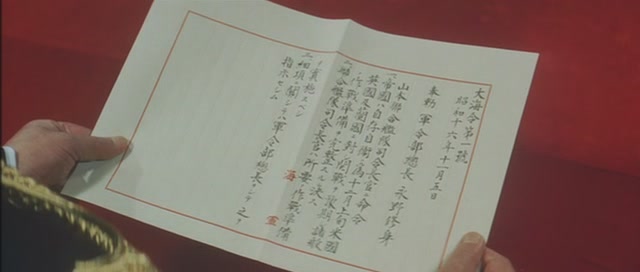 大海令第一號
昭和十六年十一月五日
奉勅 軍令部總長 永野修身
山本聯合艦隊司令長官ニ命令
一、帝國ハ自存自衛ノ為十二月上旬米國
英國及蘭國ニ對シ開戰ヲ豫期シ諸般
ノ作戰準備ヲ完整スルニ決ス
二、聯合艦隊司令長官ハ所要ノ作戰準備
ヲ實施スベシ
三、細項ニ関シテハ軍令部總長ヲシテ之ヲ
指示セシム